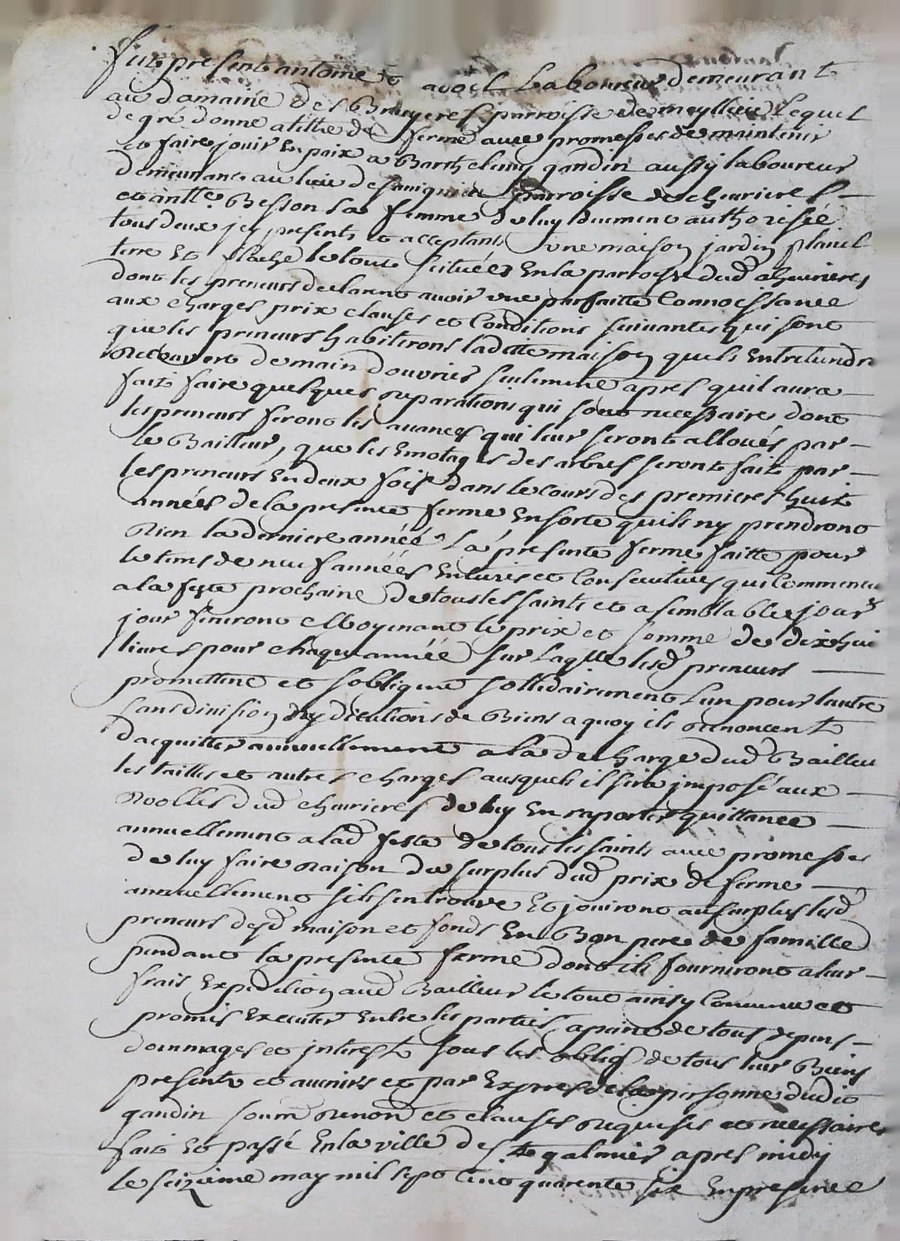 fut present antoine avoel Laboureur demeurant
au domaine des Bruyeres parroisse de meyllieu lequel
de gré donne a tiltre de ferme avec promesses de maintenir
et faire jouir En paix a Barthelemy gandin aussy laboureur
demeurant au lieu de parroisse de cheurieres
et antte Besson sa femme de luy duement authorisée
tous deux jcy presents et acceptants une maison jardin
terre Et le tout scitués En la parroisse dud cheurieres
dont les preneurs declarent auoir une parfaitte Connoissance
aux charges prix clauses et Conditions suiuantes qui sont
que les preneurs habiteront laditte maison quils Entretiendr
recouvert de main d'ouvrier seulement apres quil aura
fait faire quelques reparations qui sont necessaire dont
les preneurs feront les auances qui leur seront alloués par
le Bailleur, que les Emotages des arbres seront fait par
les preneurs En deux fois dans le cours des premieres huit
années de la presente ferme En sorte quils ny prendront
Rien la derniere année La presente ferme faitte pour
le tems de neuf années Entieres et Consecutives qui Commence
a la feste prochaine de tous les saints et a semblable jour
jour finiront Moyenant le prix et somme de dix hui
liures pour chaque année sur laqlle lesd preneurs
promettent et sobligent sollidairement Lun pour lautre
sans division ny dicutions de Biens a quoy ils renoncent
dacquitter annuellement a la decharge dud Bailleu
les tailles et autres charges ausquels il sera jmposé aux
Roolles dud cheurieres de luy En raporter quittance
annuellement a lad feste de tous les saints auec promesses
de luy faire raison du surplus dud prix de ferme
annuellement sil sen trouve Et jouiront au surplus lesd
preneurs desd maison et fonds En Bon pere de famille
pendant la presente ferme dont ils fourniront a leur
frais Expedition aud Bailleur le tout ainsy Convenu et
promis Executer Entre les parties a paine de tous depens
dommages et jnterests sous les oblig de tous leur Biens
presents et auenirs et par Expres de la personne dudit
gandin soum renon et clauses requises et necessaires
fait Et passé En la ville de st galmier apres midy
le seizieme may mil sept Cent quarente six En presence